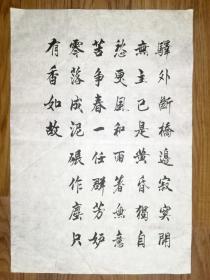 驛外斷橋邊寂寞開
無主已是黃昏獨自
愁更風和雨著無意
苦争春一任群芳妒
零落成泥碾作塵只
有香如故